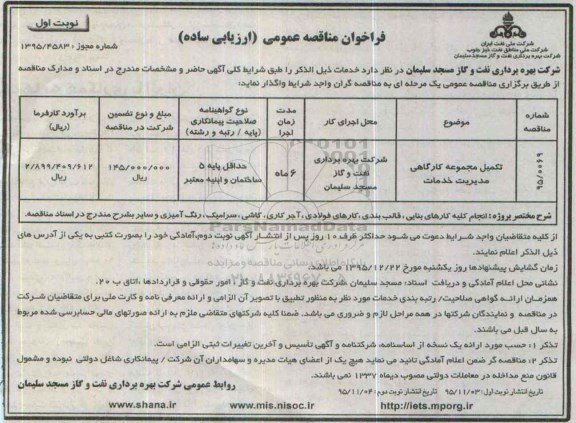 نوبت اول
شرکت ملی نفت ایران
شرکت ملی مناطق نفت خیز جنوب
شرکت بهره برداری نفت و گاز مسجدسلیمان
فراخوان مناقصه عمومی (ارزیابی ساده)
شماره مجوز : ۱۳۹۵/۴۵۸۳
شرکت بهره برداری نفت و گاز مسجد سلیمان در نظر دارد خدمات ذیل الذکر را طبق شرایط کلی آگهی حاضر و مشخصات مندرج در اسناد و مدارک مناقصه
از طریق برگزاری مناقصه عمومی یک مرحله ای به مناقصه گران واجد شرایط واگذار نماید:
شماره مناقصه
موضوع
محل اجرای کار
مدت زمان اجرا
نوع گواهینامه صلاحیت پیمانکاری (پایه / رتبه و رشته)
مبلغ و نوع تضمین شرکت در مناقصه
برآورد کارفرما (ریال)
۹۵/۰۰۶۹
تکمیل مجموعه کارگاهی مدیریت خدمات
شرکت بهره برداری نفت و گاز مسجد سلیمان
۶ ماه
حداقل پایه ۵ ساختمان و ابنیه معتبر
۱۴۵/۰۰۰/۰۰۰ ریال
۲/۸۹۹/۴۰۹/۶۱۲ ریال
شرح مختصر پروژه: انجام کلیه کارهای بنایی ، قالب بندی ،کارهای فولادی ، آجر کاری ، کاشی ، سرامیک ، رنگ آمیزی و سایر بشرح مندرج در اسناد مناقصه.
از کلیه متقاضیان واجد شرایط دعوت می شود حداکثر ظرف ۱۰ روز پس از انتشار آگهی نوبت دوم،آمادگی خود را بصورت کتبی به یکی از آدرس های
ذیل الذکر اعلام نمایند.
زمان گشایش پیشنهادها روز یکشنبه مورخ ۱۳۹۵/۱۲/۲۲ می باشد.
نشانی محل اعلام آمادگی و دریافت اسناد: مسجد سلیمان ،شرکت بهره برداری نفت و گاز ، امور حقوقی و قراردادها ،اتاق ب ۲۰.
همزمان ارائه گواهی صلاحیت/ رتبه بندی خدمات مورد نظر به منظور تطبیق با تصویر آن الزامی و ارائه معرفی نامه و کارت ملی برای متقاضیان شرکت
در مناقصه و نمایندگان شرکتها در همه مراحل لازم و ضروری می باشد. ضمنا کلیه شرکتهای متقاضی ملزم به ارائه صورتهای مالی حسابرسی شده مربوط
به سال قبل می باشند.
تذکر ۱: حسب مورد ارائه یک نسخه از اساسنامه، شرکتنامه و آگهی تأسیس و آخرین تغییرات ثبتی الزامی است.
تذکر ۲: مناقصه گر ضمن اعلام آمادگی تائید می نماید هیچ یک از اعضای هیات مدیره و سهامداران آن شرکت / پیمانکاری شاغل دولتی نبوده و مشمول
قانون منع مداخله در معاملات دولتی مصوب دیماه ۱۳۳۷ نمی باشند.
تاریخ انتشار نوبت اول: ۹۵/۱۱/۰۳ تاریخ انتشار نوبت دوم : ۹۵/۱۱/۰۴
روابط عمومی شرکت بهره برداری نفت و گاز مسجد سلیمان
http://iets.mporg.ir
www.mis.nisoc.ir
www.shana.ir